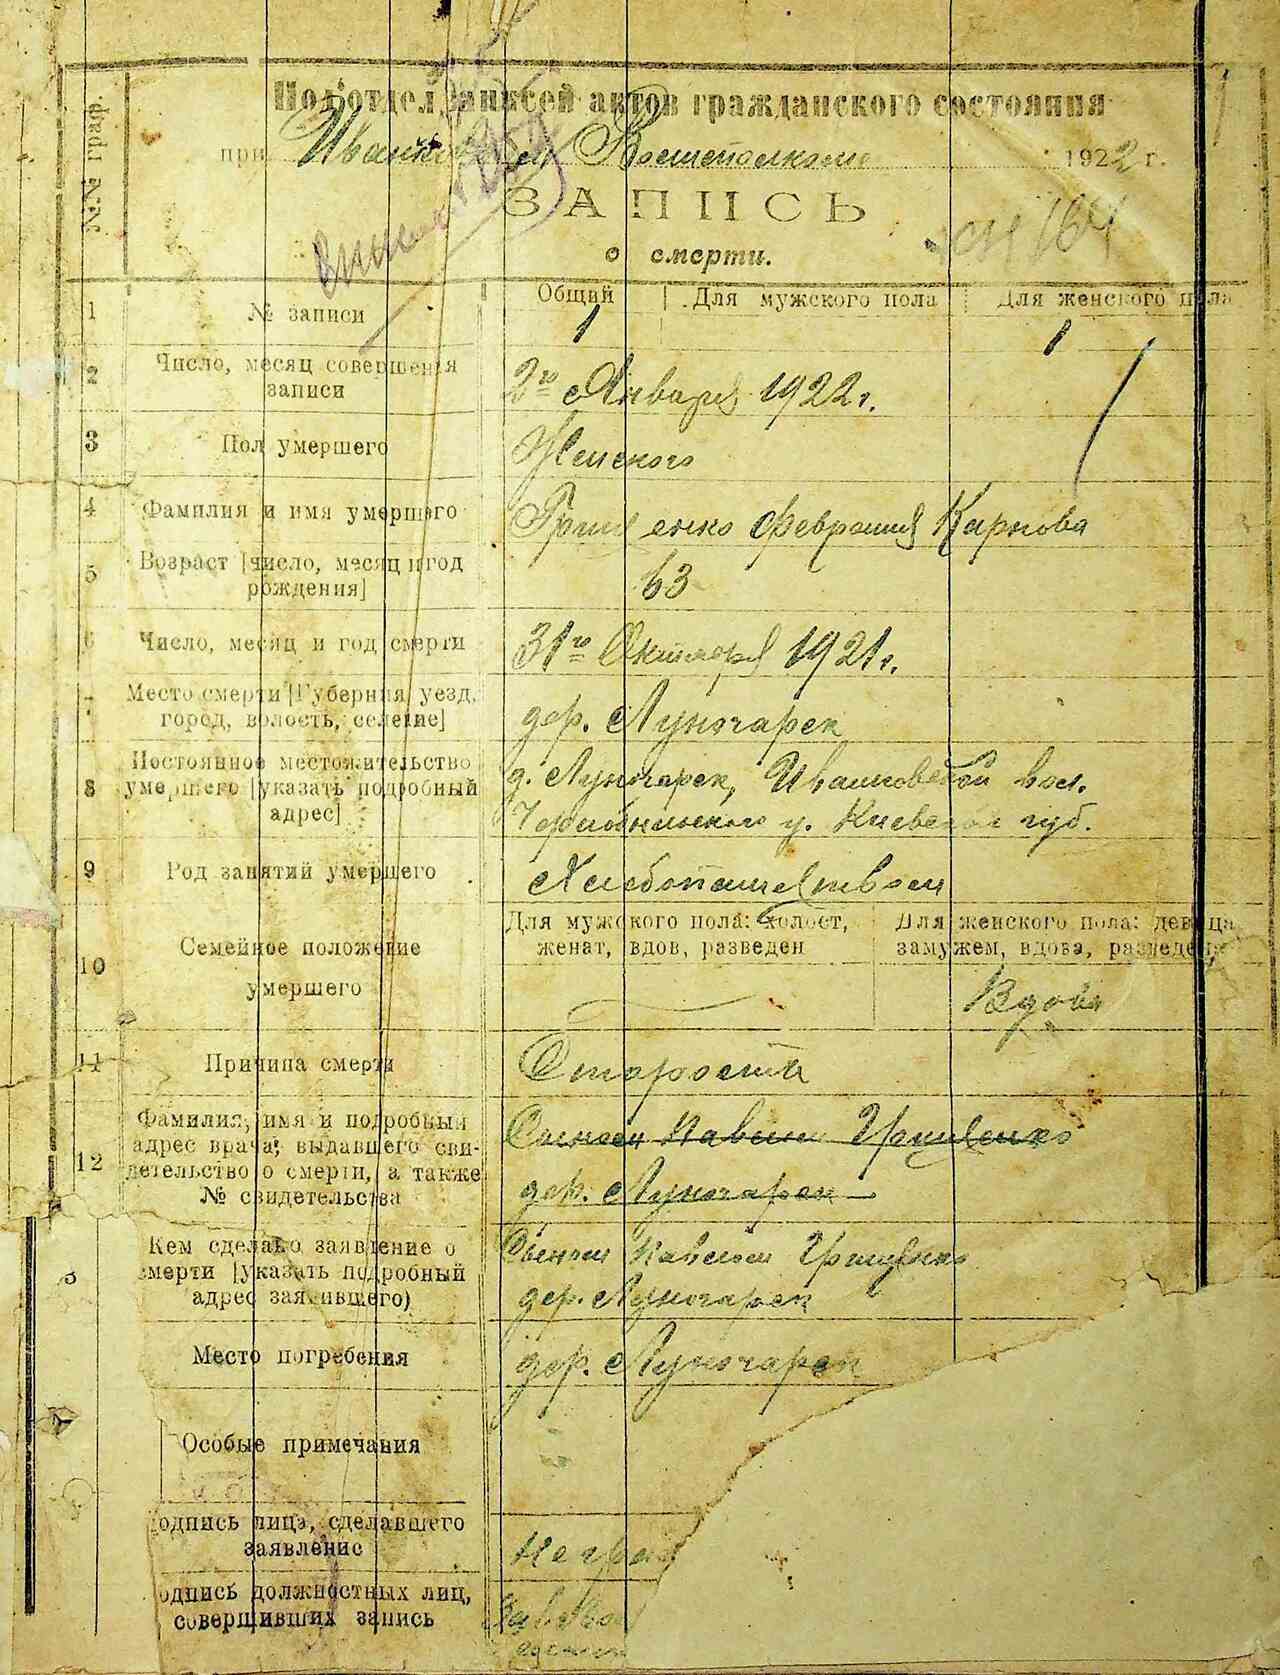 №№ граф.
Подотдел записей актов гражданского состояния
при Волисполкоме 1922 г.
ЗАПИСЬ
о смерти.
Общий Для мужского пола Для женского пола
1 № записи 1 1
2 Число, месяц совершения
записи
2го Января 1922 г.
3 Пол умершего Женского
4 Фамилия и имя умершего Грищенко Феврония Карпова
5 Возраст [число, месяц и год
рождения]
63
6 Число, месяц и год смерти 31го Октября 1921 г.
7 Место смерти [Губерния, уезд,
город, волость, селение]
дер.
8 Постоянное местожительство
умершего [указать подробный
адрес]
д. вол.
Чернобыльского у. Киевской губ.
9 Род занятий умершего Хлебопашеством
10 Семейное положение
умершего
Для мужского пола: холост,
женат, вдов, разведен
Для женского пола: девица
замужем, вдова, разведена
Вдова
11 Причина смерти Старость
12 Фамилия, имя и подробный
адрес врача, выдавшего сви-
детельство о смерти, а также
№ свидетельства
Сыном Павлом Грищенко
дер.
3 Кем сделано заявление о
смерти [указать подробный
адрес заявившего)
Сыном Павлом Грищенко
дер.
Место погребения дер.
Особые примечания
одпись лица, сделавшего
заявление
Неграм
одпись должностных лиц,
совершивших запись